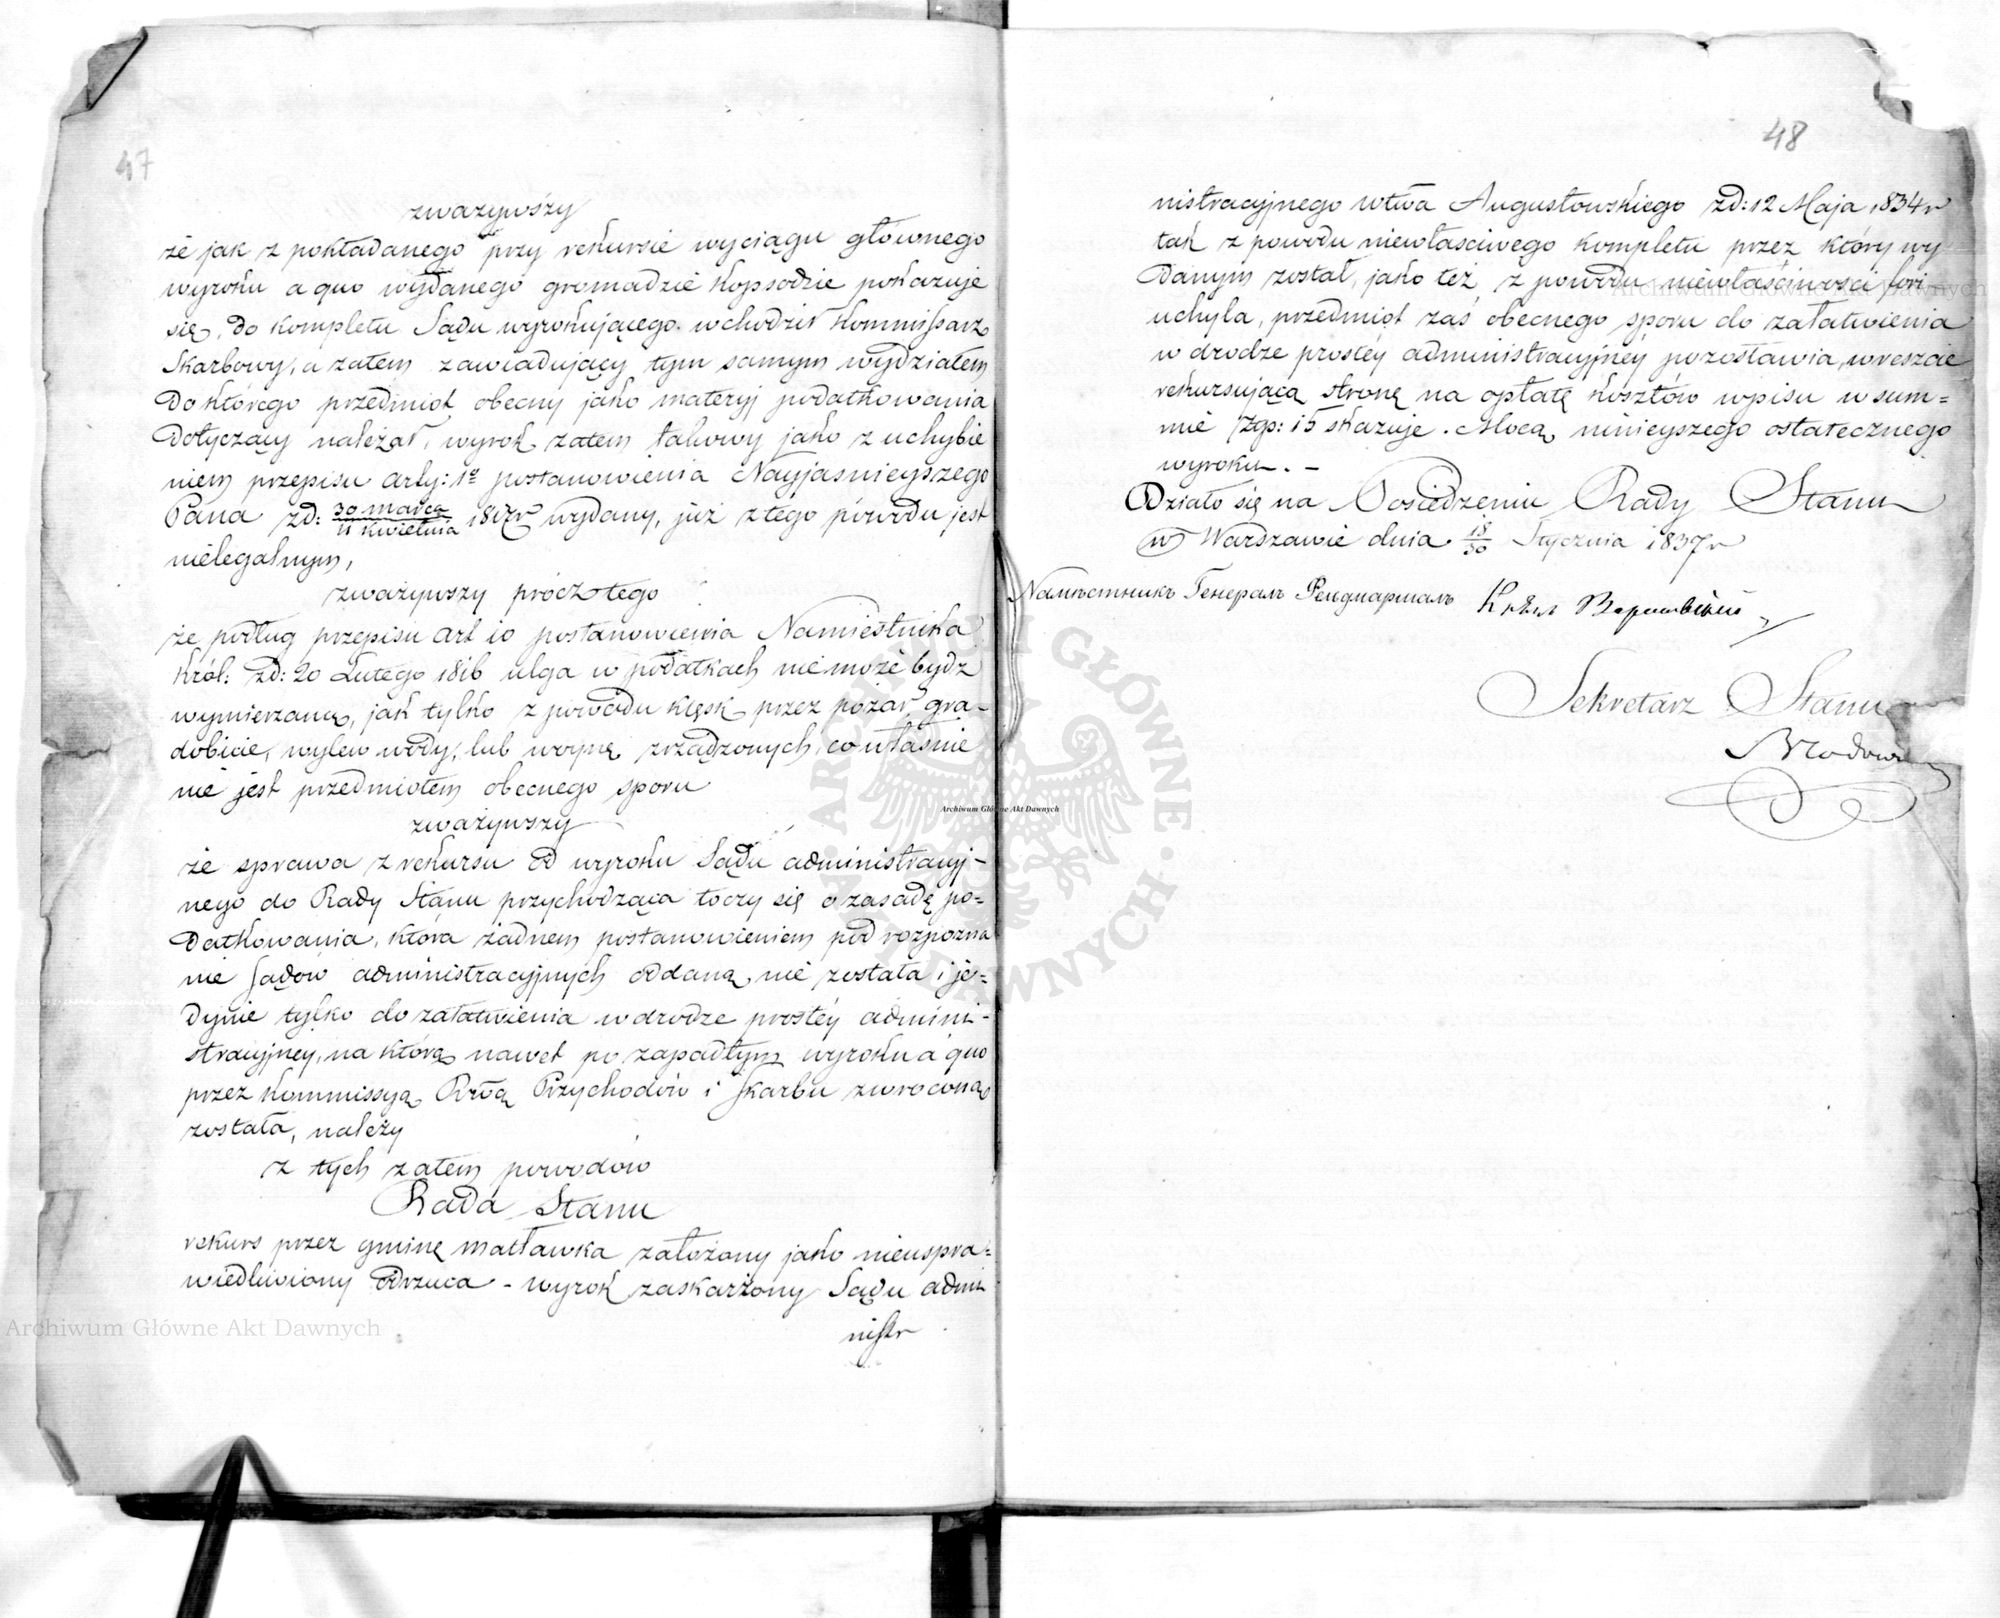 47
zważywszy
że jak z pokładanego przy rekursie wyciągu głównego
wyroku a quo wydanego gromadzie Kopsodzie pokazuje
się, do kompletu Sądu wyrokującego wchodził Kommissarz
Skarbowy, a zatem zawiadujący tym samym wydziałem
do którego przedmiot obecny jako materyj podatkowania
dotyczący należał, wyrok zatem takowy jako z uchybie
niem przepisu arty: 1o postanowienia Nayjasnieyszego
Pana zd: 30 marca / 11 kwietnia 1817r wydany, już z tego powodu jest
nielegalnym,
zważywszy prócz tego
że podług przepisu art 10 postanowienia Namiestnika
Król: zd: 20 Lutego 1816 ulga w podatkach nie może bydź
wymierzaną, jak tylko z powodu klęsk przez pożar, gra-
dobicie, wylew wody, lub woynę zrządzonych, co właśnie
nie jest przedmiotem obecnego sporu
zważywszy
że sprawa z rekursu od wyroku Sądu administracyj-
nego do Rady Stanu przychodząca toczy się o zasadę po=
datkowania, która żadnem postanowieniem pod rozpozna
nie Sądów administracyjnych oddaną nie została i je=
dynie tylko do załatwienia w drodze prostéy admini-
stracyjney, na którą nawet po zapadłym wyroku a quo
przez Kommissyą Rżōą Przychodów i Skarbu zwroconą
została, należy
z tych zatem powodów
Rada Stanu
rekurs przez gminę Matławka założony jako nieuspra=
wiedliwiony odrzuca - wyrok zaskarżony Sądu admi
nistr
Archiwum Główne Akt Dawnych
48
nistracyjnego wtwa Augustowskiego zd: 12 Maja 1834r
tak z powodu niewłaściwego kompletu przez który wy-
danym został, jako też z powodu niewłaściwości fori
uchyla, przedmiot zaś obecnego sporu do załatwienia
w drodze prostéy administracyjnéy pozostawia, wreszcie
rekursującą stronę na opłatę kosztów wpisu w sum=
mie Zgp: 15 skazuje. Mocą ninieyszego ostatecznego
wyroku. -
Działo się na Posiedzeniu Rady Stanu
w Warszawie dnia 18/30 Stycznia 1837r
Намѣстникъ Генералъ Фельдмаршалъ
Sekretarz Stanu
Archiwum Główne Akt Dawnych
Archiwum Główne Akt Dawnych
ARCHIWUM GŁÓWNE AKT DAWNYCH